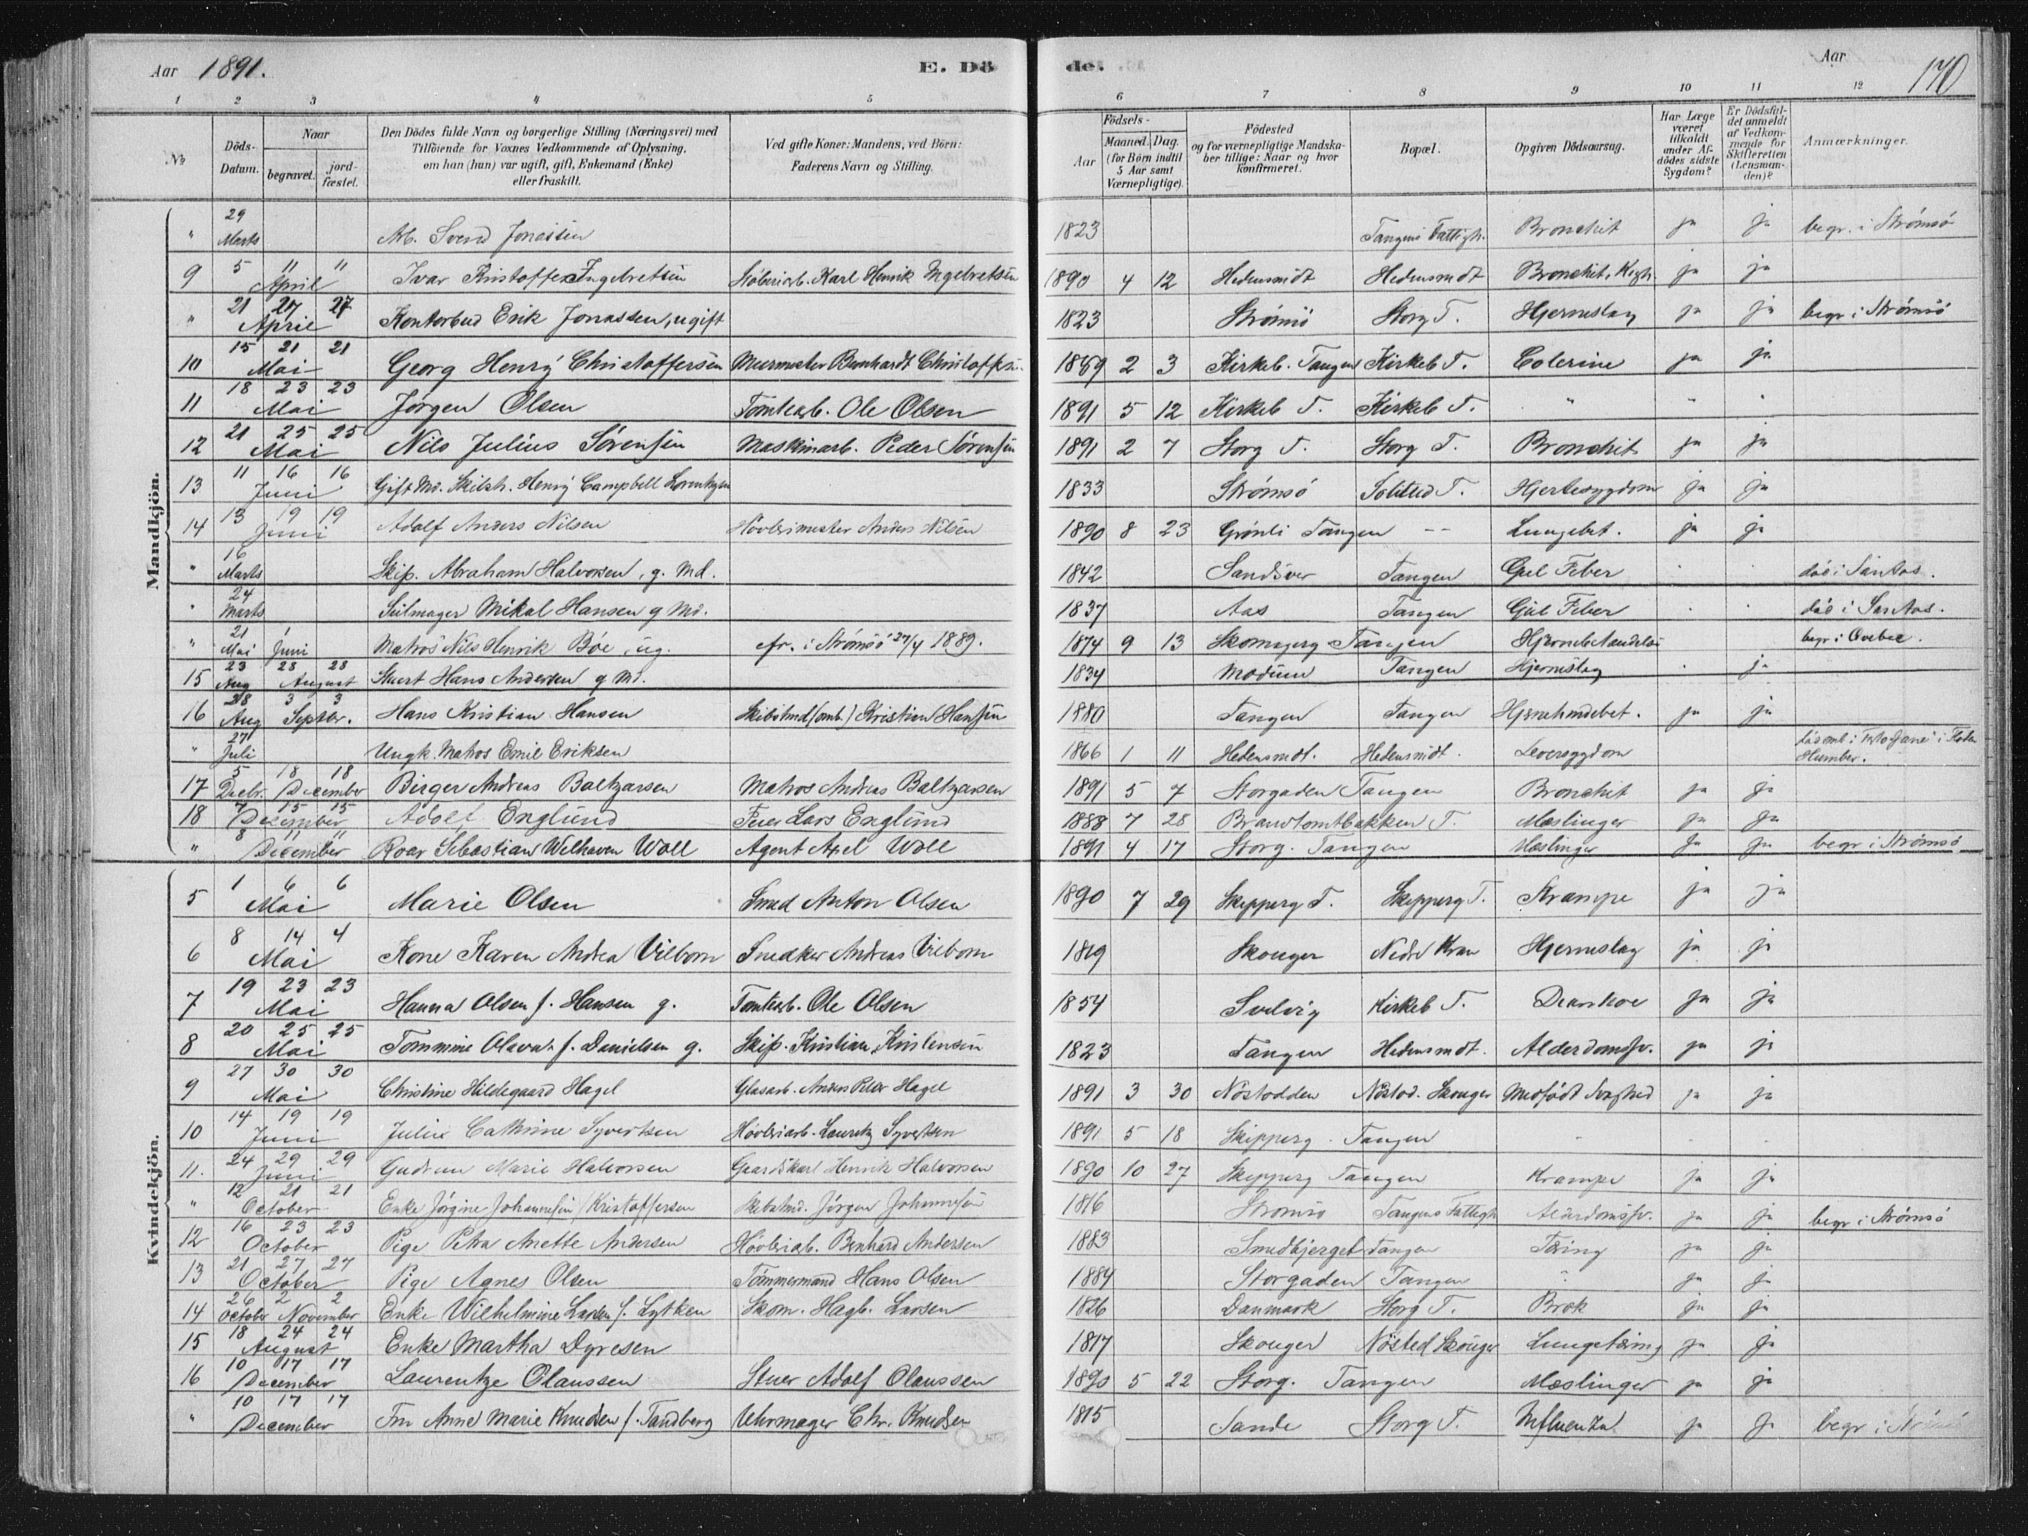 Aar 1891. E. Dö de. Aar 170
1 2 3 4 5 6 7 8 9 10 11 12
No
Döds-Datum.
Naar
begravet.
jord-fæstet.
Den Dödes fulde Navn og borgerlige Stilling (Næringsvei) med
Tilföiende for Voxnes Vedkommende af Oplysning,
om han (hun) var ugift, gift, Enkemand (Enke)
eller fraskilt.
Ved gifte Koner: Mandens, ved Börn:
Faderens Navn og Stilling.
Födsels-
Aar
Maaned. Dag.
(for Börn indtil
5 Aar samt
Værnepligtige).
Födested
og for værnepligtige Mandska-
ber tillige: Naar og hvor
konfirmeret.
Bopæl.
Opgiven Dödsaarsag.
Har Læge
været
tilkaldt
under Af-
dödes sidste
Sygdom?
Er Dödsfal-
det anmeldt
af Vedkom-
mende for
Skifteretten
(Lensman-
den)?
Anmærkninger.
Mandkjön.
" 29 Marts Svend Jonassen 1823 Tangens Fattigh. Bronchit ja ja begr. i Strømsö
9 5 11 11 April Ivar Kristoffer Ingebretsen Karl Henrik Ingebretsen 1890 4 12 Hedensmidt Hedensmidt Bronchit. ja ja
" 21 27 27 April Kontorbud Erik Jonassen, ugift 1823 Strömsö Storg T. Hjerneslag ja ja begr i Strømsö
10 15 21 21 Mai Georg Henry Christoffersen Murmester Bernhardt Christoffersen 1889 2 3 Kirkeb. Tangen Kirkeb T. Colerine ja ja
11 18 23 23 Mai Jørgen Olsen Tomtearb. Ole Olsen 1891 5 12 Kirkeb T. Kirkeb T. " " "
12 21 25 25 Mai Nils Julius Sørensen Maskinarb. Peder Sørensen 1891 2 7 Storg T. Storg T. Bronchit ja ja
13 11 16 16 Juni Gift Md. Henry Campbell Lorentzen 1833 Strømsö Solsted T. Hjertesygdom ja ja
14 13 19 19 Juni Adolf Anders Nilsen Høvlerimester Anders Nilsen 1890 8 23 Grönli Tangen -- Lungebet. ja ja
" 16 Marts Skip. Abraham Halvorsen, g. Md. 1842 Sandsver Tangen Gul Feber død i Santos.
" 24 Marts Seilmager Mikal Hansen g Md. 1837 Aas Tangen Gul Feber død i Santos.
" 21 Mai Juni Matros Nils Henrik Böe, ug. cfr. i Strømsö 1889. 1874 9 13 Skomagerg Tangen begr i Qvebec.
15 23 Aug 28 28 August Stuert Hans Andersen g Md. 1834 Modum Tangen Hjerneslag ja
16 28 Aug 3 3 Septbr. Hans Kristian Hansen Kristian Hansen 1880 Tangen Tangen Hjernehindebet. ja ja
" 27 Juli Ungk. Matros Emil Eriksen 1866 1 11 Hedensmdt. Hedensmidt. Leversygdom Humber.
17 5 Decbr. 18 18 December Birger Andreas Baltzarsen Matros Andreas Baltzarsen 1891 5 7 Storgaden Tangen Bronchit ja ja
18 7 15 15 December Adolf Englund Lars Englund 1888 7 28 Brandtomtbakken T. Mæslinger ja ja
" 8 11 11 December Roar Sebastian Welhaven Woll Agent Axel Woll 1891 4 17 Storg. Tangen Mæslinger ja ja begr i Strømsö
Kvindekjön.
5 1 6 6 Mai Marie Olsen Smed Anton Olsen 1890 7 29 Skipperg T. Skipperg T. Krampe ja ja
6 8 14 4 Mai Kone Karen Andrea Vilborn Snedker Andreas Vilborn 1819 Skouger Nedre Kran Hjerneslag ja ja
7 19 23 23 Mai Hanna Olsen f. Hansen g. Tomtearb. Ole Olsen 1854 Svelvig Kirkeb T. ja ja
8 20 25 25 Mai Tommine f. Danielsen g. Skip. Kristian Kristensen 1823 Tangen Hedensmdt. Alderdomssv. ja ja
9 27 30 30 Mai Christine Hildegaard Hagel Glasarb. Anders Peter Hagel 1891 3 30 Nöstodden Nöstod. Skouger Medfødt Svaghed ja ja
10 14 19 19 Juni Julie Cathrine Syvertsen Høvleriarb. Lauritz Syvertsen 1891 5 18 Skipperg. Tangen
11. 24 29 29 Juni Gudrun Marie Halvorsen Gaardskarl Henrik Halvorsen 1890 10 27 Skipperg Tangen Krampe ja ja
" 12 21 21 October Enke Jörgine Johannesen Kristoffersen Jörgen Johannesen 1816 Strömsö Tangens Fattigh Alderdomssv. ja ja begr i Strømsö
12 16 23 23 October Pige Petra Anette Andersen Høvleriarb. Bernhard Andersen 1883 Smedbjerget Tangen Tæring ja ja
13 21 27 27 October Pige Agnes Olsen Tömmermand Hans Olsen 1884 Storgaden Tangen " ja ja
14 26 October 2 2 November Enke Wilhelmine Larsen f. Lytken Skom. Hagb. Larsen 1826 Danmark Storg T. Brok ja ja
15 18 24 24 August Enke Martha Dyresen 1817 Skouger Nösted Skouger Lungetæring ja ja
16 10 17 17 December Laurentze Olaussen Stuer Adolf Olaussen 1890 5 22 Storg. Tangen Mæslinger ja ja
" 10 17 17 December Fru Anne Marie Knudsen f. Tandberg Uhrmager Chr. Knudsen 1815 Sande Storg T. Influenza ja ja begr i Strømsö